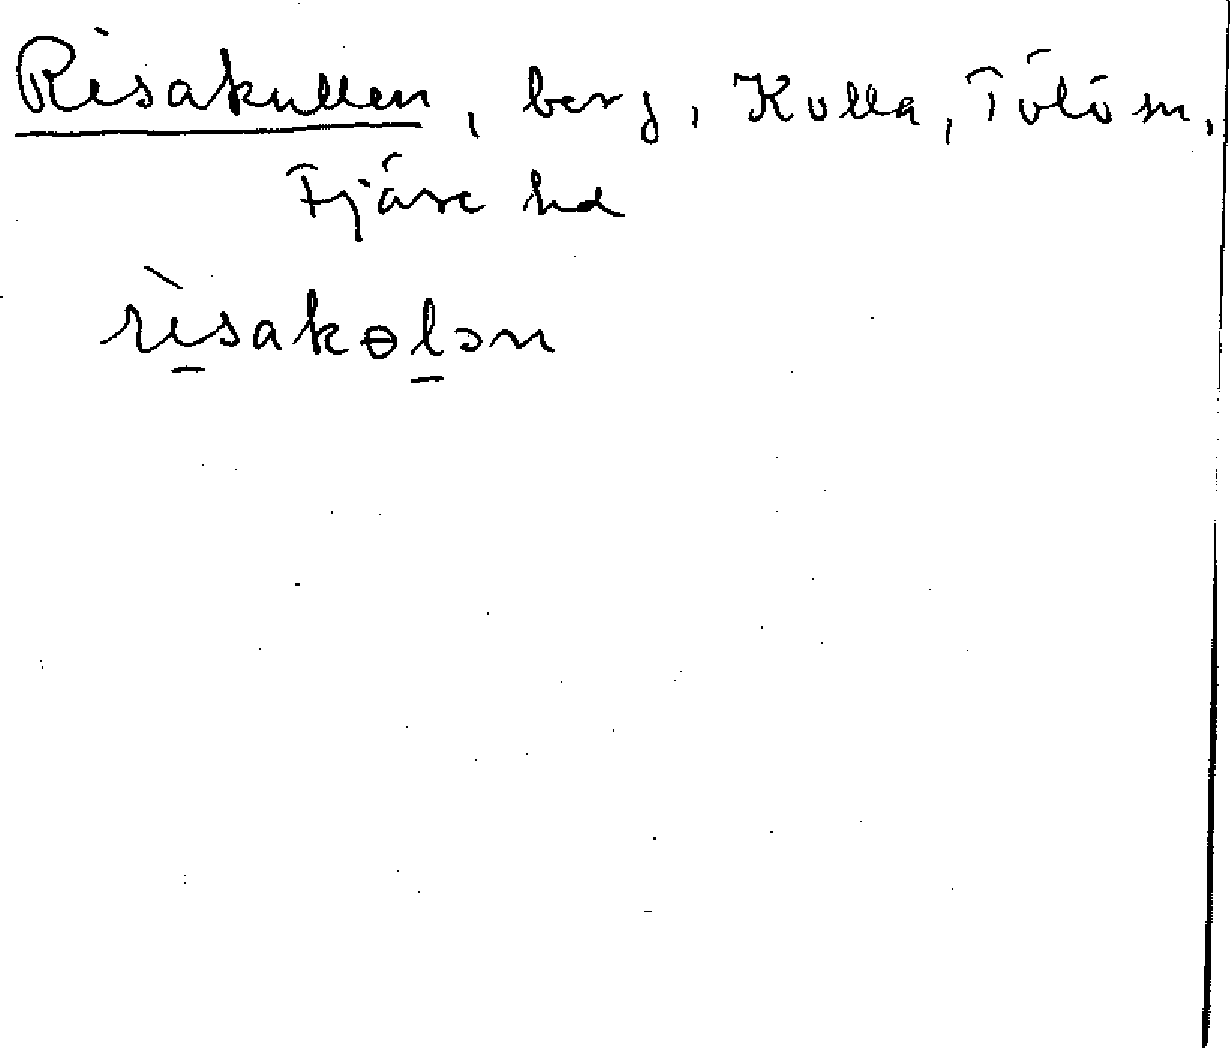 Risakullen, berg, Kulla, Tölö sn,
Fjäre hd
rìsakɵlən